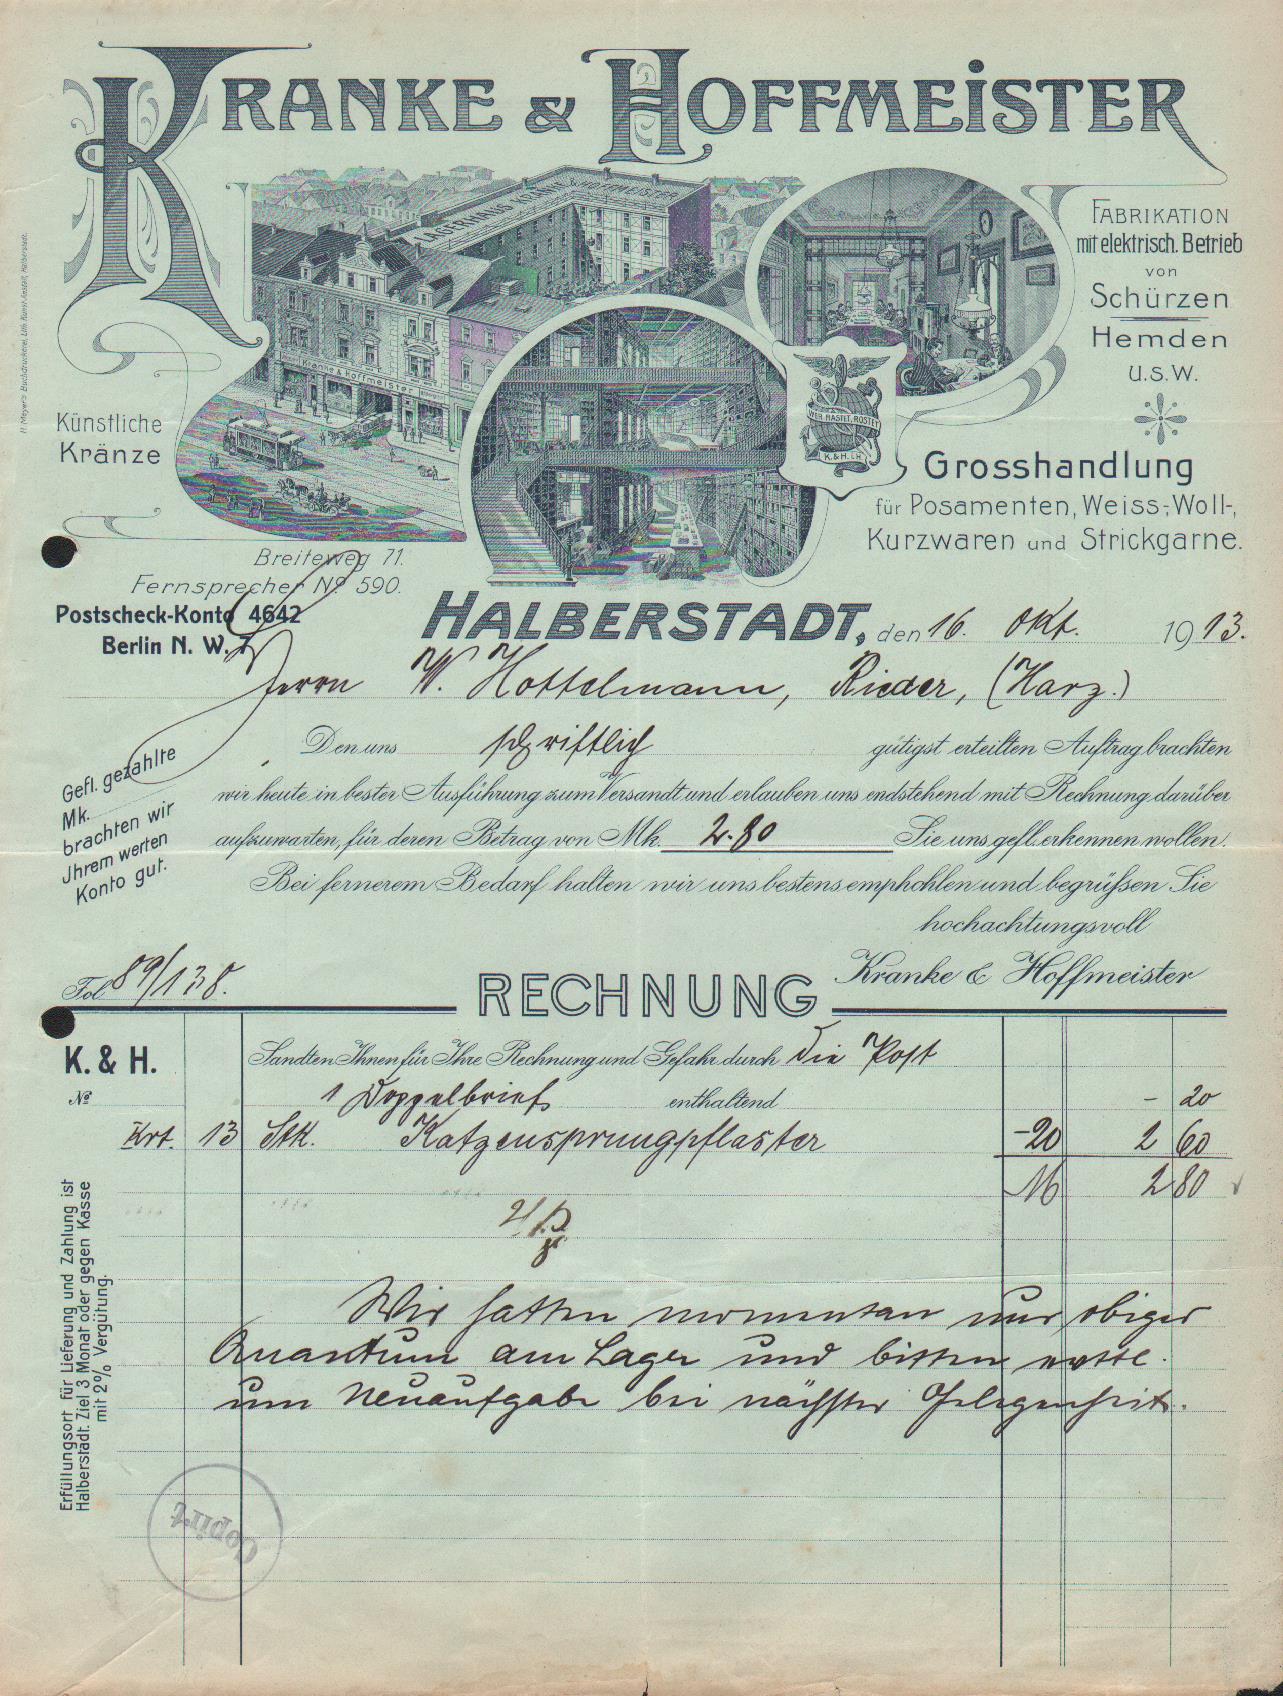 KRANKE & HOFFMEISTER
LAGERHAUS KRANKE & HOFFMEISTER
Kranke & Hoffmeister
WER RASTET, ROSTET
K. & H. i. H.
FABRIKATION
mit elektrisch. Betrieb
von
Schürzen
Hemden
U.S.W.
Künstliche
Kränze
Grosshandlung
für Posamenten, Weiss-, Woll-,
Kurzwaren und Strickgarne.
H. Meyer's Buchdruckerei, Lith. Kunst-Anstalt, Halberstadt.
Breiteweg 71.
Fernsprecher No 590.
Postscheck-Konto 4642
Berlin N. W. 7
HALBERSTADT, den 16. Okt. 1913.
Herrn W. Hottelmann, Rieder, (Harz.)
Den uns schriftlich gütigst erteilten Auftrag brachten
wir heute in bester Ausführung zum Versandt und erlauben uns endstehend mit Rechnung darüber
aufzuwarten, für deren Betrag von Mk. 2.80 Sie uns gefl. erkennen wollen.
Bei fernerem Bedarf halten wir uns bestens empfohlen und begrüßen Sie
hochachtungsvoll
Kranke & Hoffmeister
Gefl. gezahlte
Mk.
brachten wir
Jhrem werten
Konto gut.
Fol 89/138.
RECHNUNG
K. & H.
No
Sandten Ihnen für Ihre Rechnung und Gefahr durch die Post
1 Doppelbrief enthaltend - 20
Krt. 13 Stk. Katzensprungpflaster -20 2 60
M 2 80
Wir hatten momentan nur obiges
Quantum am Lager und bitten evtl.
um Neuaufgabe bei nächster Gelegenheit.
Erfüllungsort für Lieferung und Zahlung ist
Halberstadt. Ziel 3 Monat oder gegen Kasse
mit 2% Vergütung.
Copirt